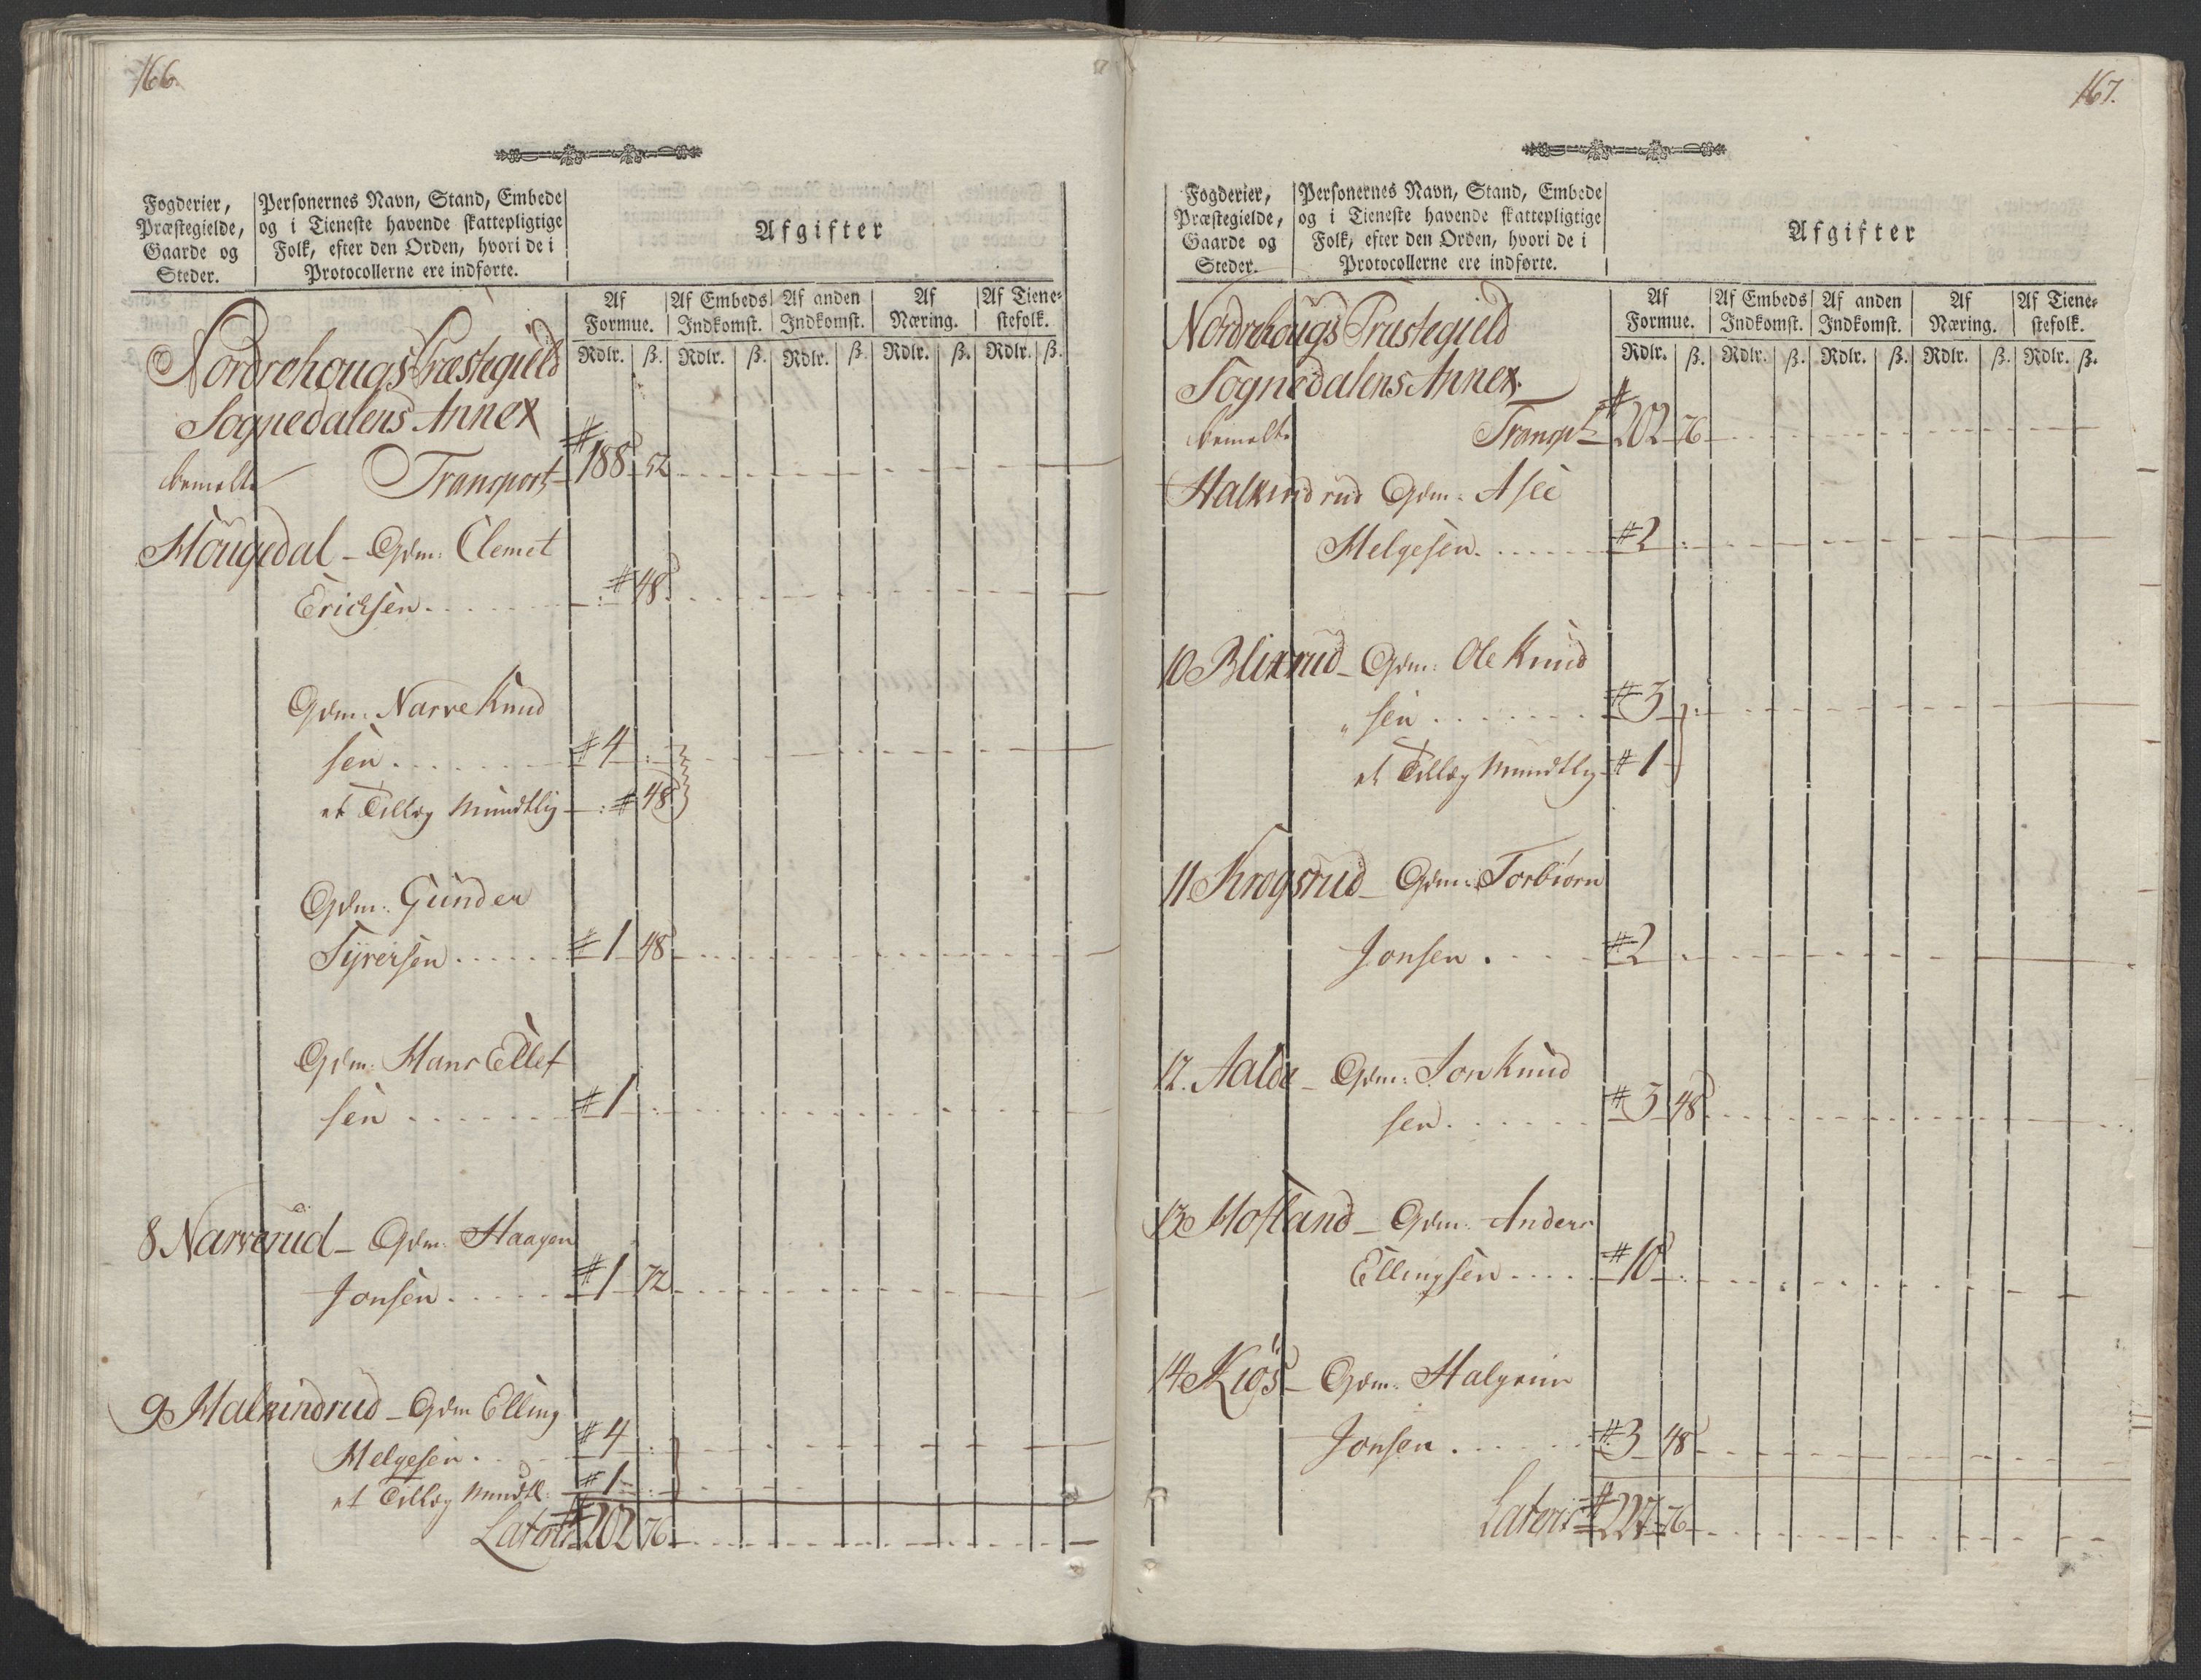 166.
Fogderier,
Præstegielde,
Gaarde og
Steder.
Personernes Navn, Stand, Embede
og i Tieneste havende skattepligtige
Folk, efter den Orden, hvori de i
Protocollerne ere indførte.
Afgifter
Af Formue. Af Embeds Indkomst. Af anden Indkomst. Af Næring. Af Tienestefolk.
Rdlr. ß. Rdlr. ß. Rdlr. ß. Rdlr. ß. Rdlr. ß.
Nordrehougs Præstegield
Sognedalens Annex
bemelte Transport 188 52
Hougedal - Gdm: Clemet
Ericksen 48
Gdm: Narve Knud
sen 4
et Tillæg mundtlig 48
Gdm: Gunder
Syversen 1 48
Gdm: Hans Ellef
sen 1
8 Narverud - Gdm: Haagen
Jonsen 1 72
9 Halkindrud - Gdm Elling
Helgesen 4
et Tillæg mundtl: 1
Lateris 202 76
167.
Fogderier,
Præstegielde,
Gaarde og
Steder.
Personernes Navn, Stand, Embede
og i Tieneste havende skattepligtige
Folk, efter den Orden, hvori de i
Protocollerne ere indførte.
Afgifter
Af Formue. Af Embeds Indkomst. Af anden Indkomst. Af Næring. Af Tienestefolk.
Rdlr. ß. Rdlr. ß. Rdlr. ß. Rdlr. ß. Rdlr. ß.
Nordrehougs Præstegield
Sognedalens Annex.
bemelte Transpt 202 76
Halkindrud Gdm:
Helgesen 2
10 Blixrud - Gdm: Ole Knud
sen 3
et Tillæg mundtlig 1
11 Krogsrud - Gdm: Torbiørn
Jonsen 2
12. Aalde - Gdm: Jon Knud
sen 3 48
13 Hofland - Gdm: Anders
Ellingsen 10
14 Kiøs - Gdm: Halgrim
Jonsen 3 48
Lateris 227 76